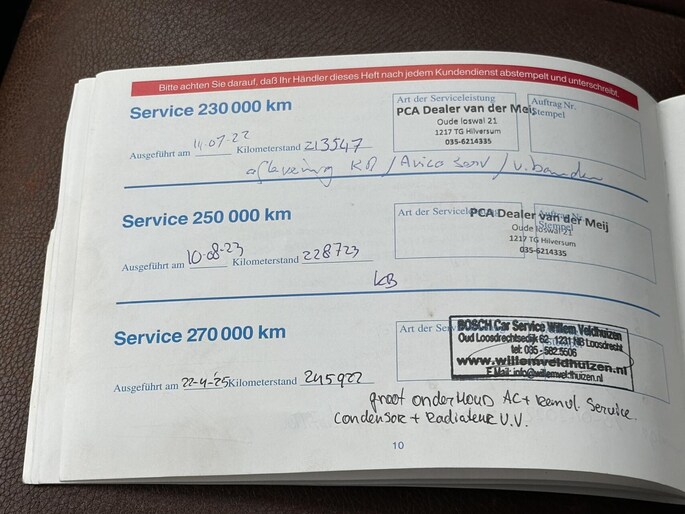 Bitte achten Sie darauf, daß Ihr Händler dieses Heft nach jedem Kundendienst abstempelt und unterschreibt.
Service 230 000 km
Art der Serviceleistung
Auftrag Nr.
Stempel
PCA Dealer van der Meij
Oude loswal 21
1217 TG Hilversum
035-6214335
Ausgeführt am 11-07-22 Kilometerstand 213547
aflevering KB / Airco Serv / v. banden
Service 250 000 km
Art der Serviceleistung
Auftrag Nr.
Stempel
PCA Dealer van der Meij
Oude loswal 21
1217 TG Hilversum
035-6214335
Ausgeführt am 10-08-23 Kilometerstand 228723
KB
Service 270 000 km
Art der
BOSCH Car Service Willem Veldhuizen
Oud Loosdrechtsedijk 62 1231 NB Loosdrecht
tel: 035 - 582.5506
www.willemveldhuizen.nl
E Mail: info@willemveldhuizen.nl
Ausgeführt am 22-4-'25 Kilometerstand 245922
groot onderHoud AC+ Remvl. Service.
Condensor + Radiateur V.V.
10